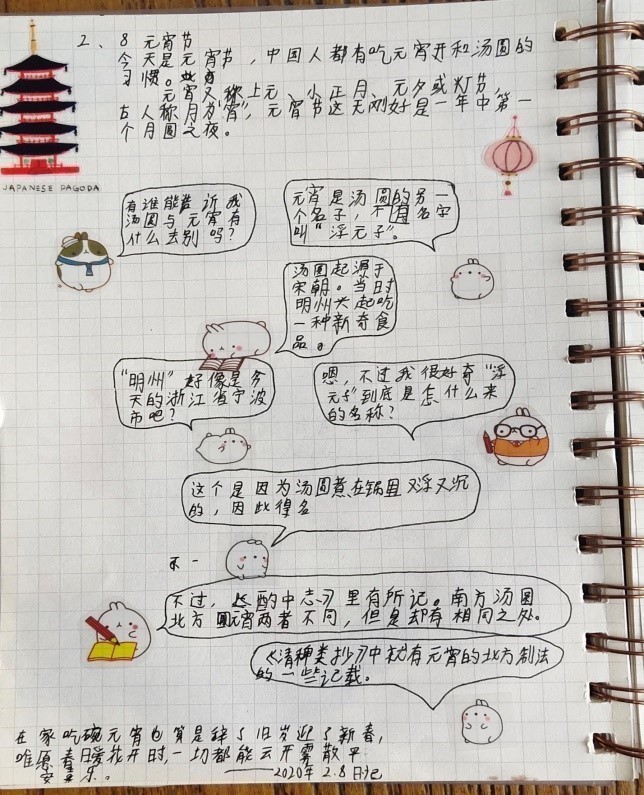 2、8 元宵节
今天是元宵节，中国人都有吃元宵并和汤圆的
习惯。
元宵又称上元、小正月、元夕或灯节，
古人称月为"宵"，元宵节这天刚好是一年中第一
个月圆之夜。
JAPANESE PAGODA
有谁能告诉我
汤圆与元宵有
什么去别吗？
元宵是汤圆的另一
个名子，不得名字
叫"浮元子"。
汤圆起源于
宋朝。当时
明州兴起吃
一种新奇食
品。
"明州"好像是今
天的浙江省宁波
市吧？
嗯，不过我很好奇"浮
元子"到底是怎什么来
的名称？
这个是因为汤圆煮在锅里又浮又沉
的，因此得名
不一
不过，《酌中志》里有所记。南方汤圆
北方圆元宵两者不同，但是却有相同之处。
《清种类抄》中就有元宵的北方制法
的一些记载。
在家吃碗元宵也算是辞了旧岁迎了新春，
唯愿春日暖花开时，一切都能云开雾散平
安喜乐。
——2020年2.8日记